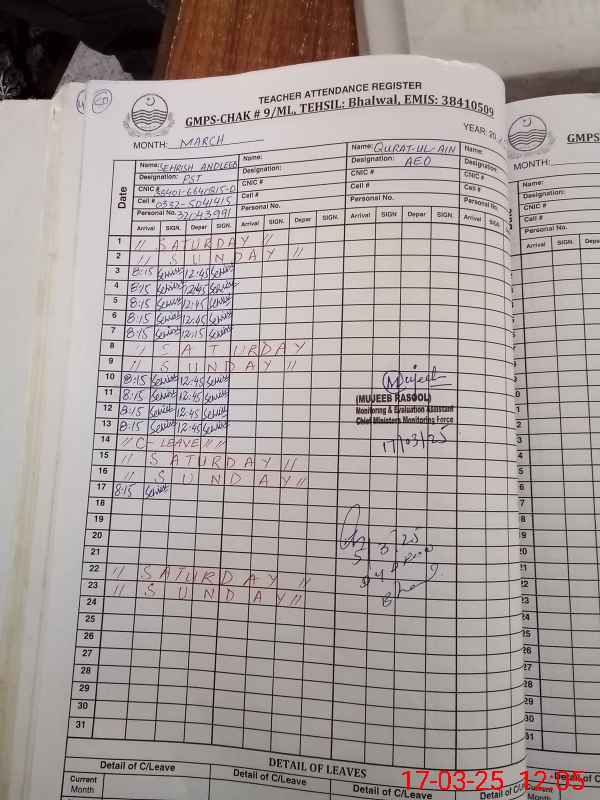 TEACHER ATTENDANCE REGISTER
GMPS-CHAK # 9/ML, TEHSIL: Bhalwal, EMIS: 38410509
MONTH: MARCH YEAR: 20
Name: SEHRISH ANDLEEB Name: Name: QURAT-UL-AIN Name:
Designation: PST Designation: Designation: AEO Designation
CNIC # CNIC # CNIC # CNIC #
Cell # 0332-5041415 Cell # Cell # Cell #
Personal No. 32143991 Personal No. Personal No. Personal No.
Date Arrival SIGN. Depar SIGN. Arrival SIGN. Depar SIGN. Arrival SIGN. Depar SIGN. Arrival SIGN.
1 // SATURDAY //
2 // SUNDAY //
3 8:15 12:45
4 8:15 12:45
5 8:15 12:45
6 8:15 12:45
7 8:15 12:15
8 // SATURDAY
9 // SUNDAY //
10 8:15 12:45
11 8:15 12:45
12 8:15 12:45
13 8:15 12:45
14 // C-LEAVE // //
15 // SATURDAY //
16 // SUNDAY //
17 8:15
18
19
20
21
22 // SATURDAY //
23 // SUNDAY //
24
25
26
27
28
29
30
31
Mujeeb
(MUJEEB RASOOL)
Monitoring & Evaluation Assistant
Chief Ministers Monitoring Force
17/03/25
5/3/25
DETAIL OF LEAVES
Detail of C/Leave Detail of C/Leave Detail of C/Leave
Current Month Current Month Current Month
GMPS
MONTH:
Name:
Designation:
CNIC #
Cell #
Personal No.
Arrival SIGN. Depar
Detail of C
Current Month
17-03-25 12:05